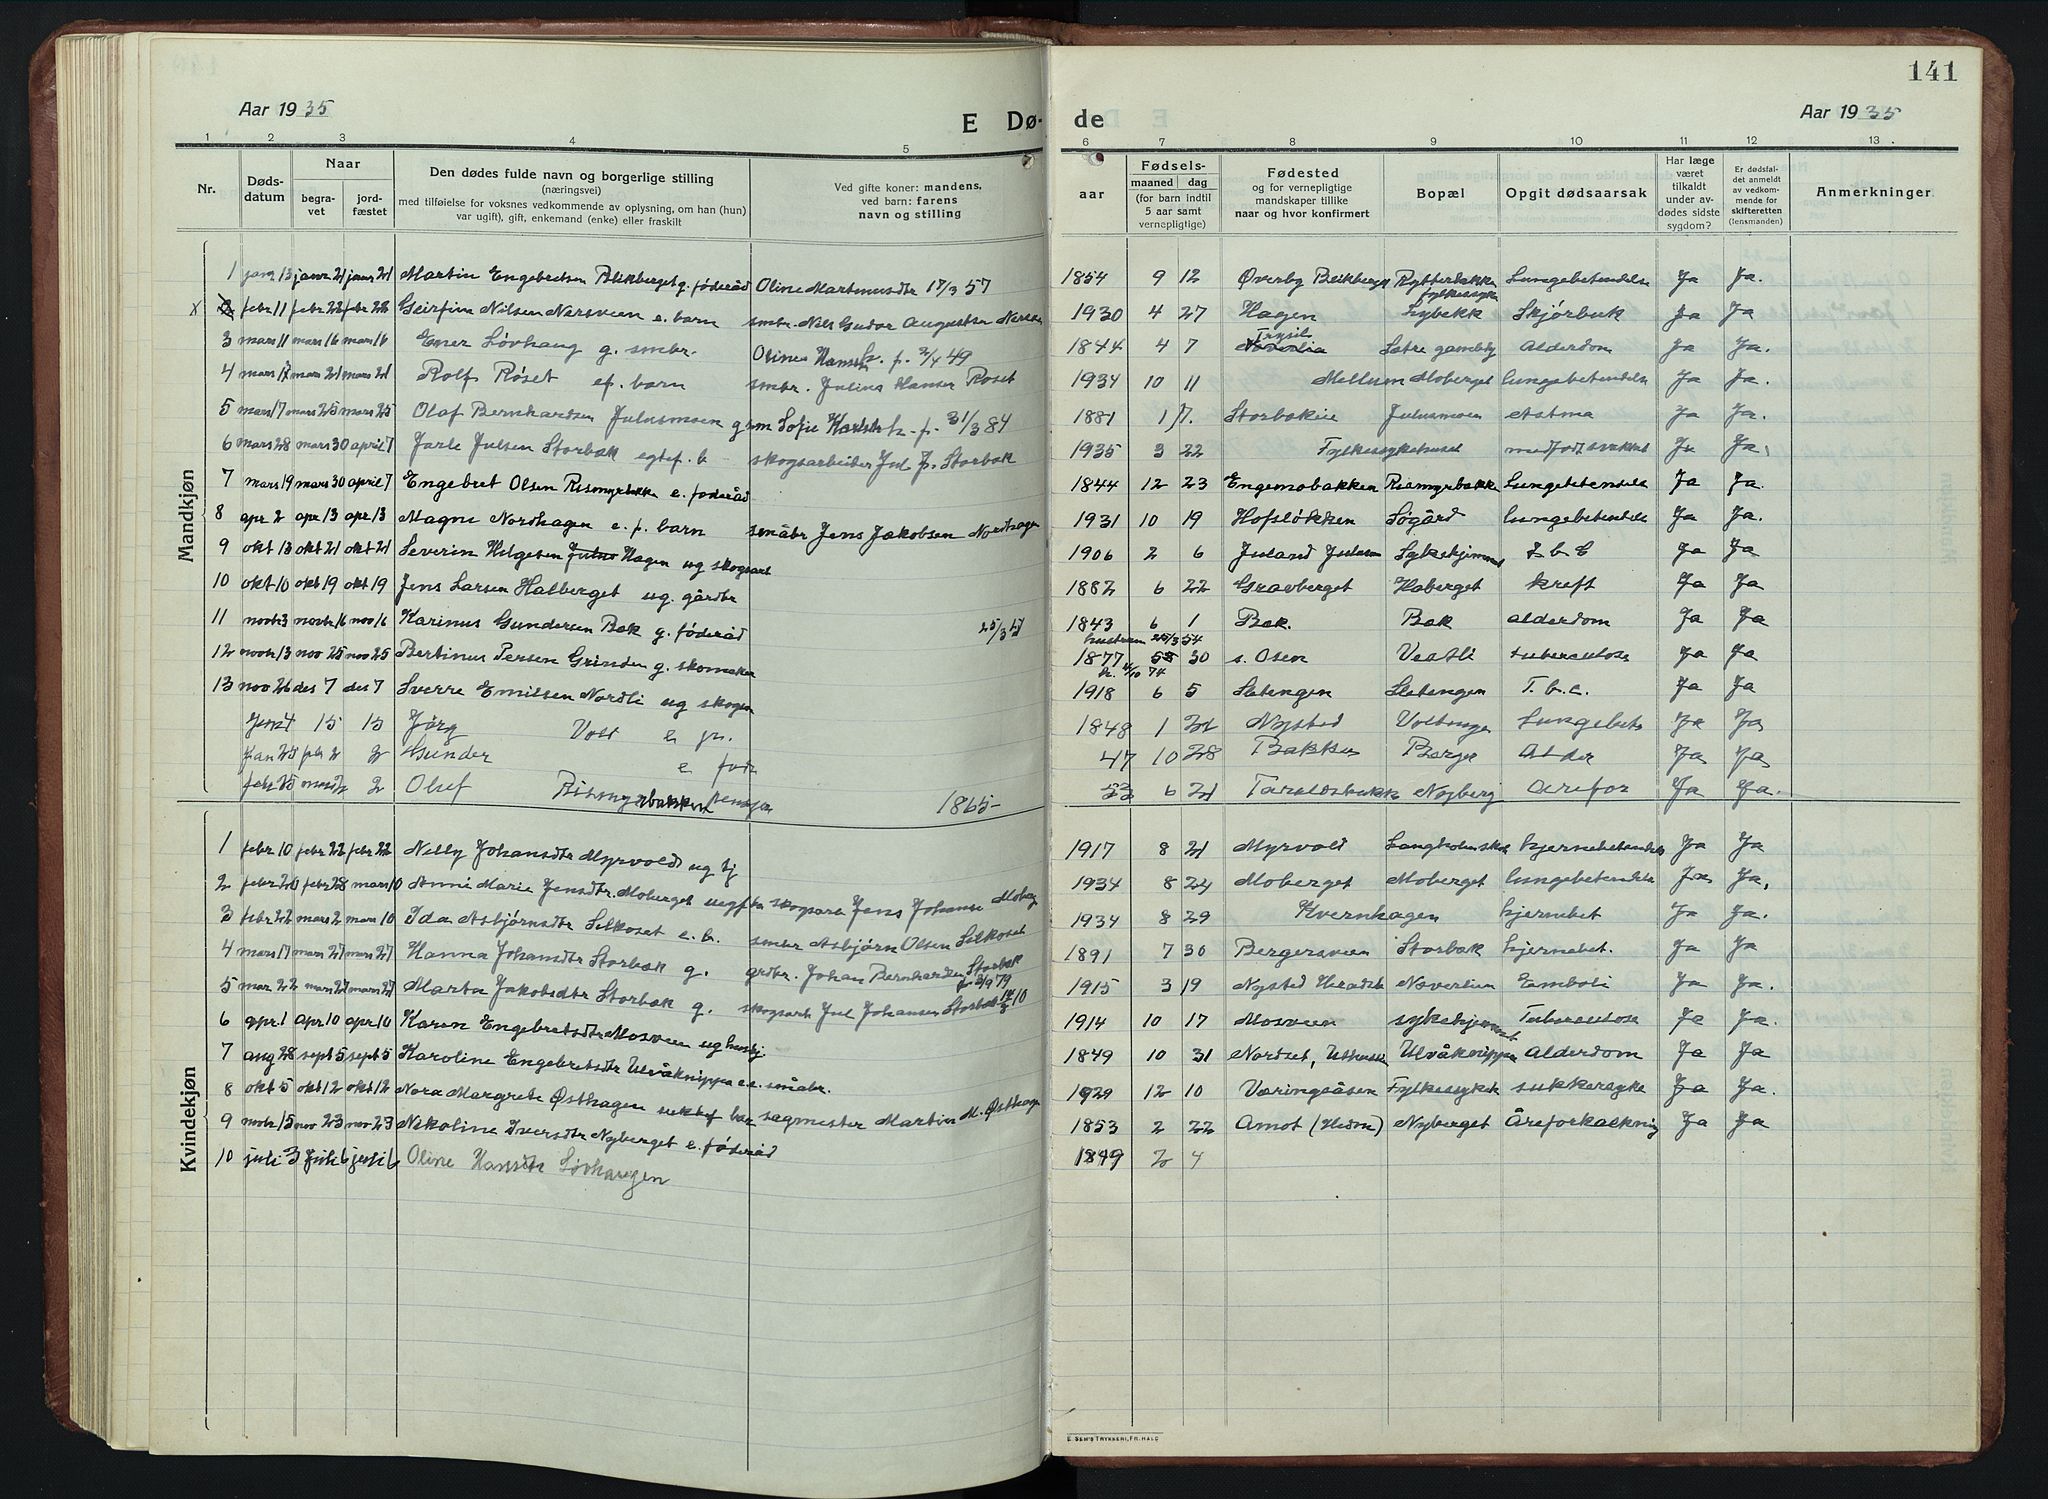 141
Aar 1935
E Dø-
de
Aar 1935
1 2 3 4 5 6 7 8 9 10 11 12 13
Nr.
Døds-
datum
Naar
begra-
vet
jord-
fæstet
Den dødes fulde navn og borgerlige stilling
(næringsvei)
med tilføielse for voksnes vedkommende av oplysning, om han (hun)
var ugift), gift, enkemand (enke) eller fraskilt
Ved gifte koner: mandens,
ved barn: farens
navn og stilling
aar
Fødsels-
maaned dag
(for barn indtil
5 aar samt
vernepligtige)
Fødested
og for vernepligtige
mandskaper tillike
naar og hvor konfirmert
Bopæl
Opgit dødsaarsak
Har læge
været
tilkaldt
under av-
dødes sidste
sygdom?
Er dødsfal-
det anmeldt
av vedkom-
mende for
skifteretten
(lensmanden)
Anmerkninger
Mandkjøn
1 janr 13 janr 21 janr 21 Martin Engebretsen Blikberget g. føderåd Oline Martinusdtr 17/3 57 1854 9 12 Øverby Blikberget Rytterbakken Lungebetendelse Ja Ja.
x 2 febr 11 febr 22 febr 28 Geirfinn Nilsen Nersveen e. barn smbr. Nils Gudor Augustsen 1930 4 27 Hagen Lybekk fylkessyke Skjørbuk Ja Ja
3 mars 11 mars 16 mars 16 Ener Løvhaug g. smbr. Oline Hansdtr. f. 2/4 49 1844 4 7 Trysil Sætre Alderdom Ja Ja.
4 mars 17 mars 21 mars 21 Rolf Røset ef. barn smbr. Julius Hansen Røset 1934 10 11 Mellum Moberget lungebetendelse Ja Ja.
5 mars 17 mars 25 mars 25 Olaf Bernhardsen Julusmoen Sofie f. 31/3 84 1881 1 7. Storbekken Julusmoen Astma Ja Ja.
6 mars 28 mars 30 april 7 Jarle Julsen Storbæk egtef. b skogsarbeider Jul J. Storbæk 1935 3 22 Fylkessykehuset medfødt svakhet Ja Ja
7 mars 19 mars 30 april 7 Engebret Olsen Rismyrbakken e. føderåd 1844 12 23 Engemobakken Rismyrbakken Lungebetendelse Ja Ja.
8 apr 2 apr 13 apr 13 Magne Nordhagen e. f. barn småbr Jens Jakobsen Nordhagen 1931 10 19 Hofsløkken Søgård lungebetendelse Ja Ja.
9 okt 13 okt 21 okt 21 Severin Helgesen Julus Hagen ug skogsarb 1906 2 6 Juland Julusm Sykehjemmet T b C Ja Ja
10 okt 10 okt 19 okt 19 Jens Larsen Halberget ug. gårdbr 1882 6 22 Gravberget Haberget kreft Ja Ja
11 novbr 3 novbr 16 nov 16 Karinus Gundersen Bæk g. føderåd 25/3 54 1843 6 1 Bæk. Bæk alderdom Ja Ja
hustruen 25/3 54
12 novbr 13 nov 25 nov 25 Bertinus Persen Grinden g. skomaker 1877 5 30 s. Osen Vestli tuberculose Ja Ja
74
13 nov 26 des 7 des 7 Sverre Emilsen Nordli ug skogsm 1918 6 5 Sletengen Sletengen T. b. c. Ja Ja
15 15 Jørg Voll e 1848 1 31 Nysted Lungebet Ja Ja
Jan 25 febr 2 2 Gunder e fode 47 10 28 Bakken Berger Alder Ja Ja
febr 25 2 Oluf Rismyrbakken 1865- 53 6 21 Nyberg Årefor Ja Ja.
Kvindekjøn
1 febr 10 febr 22 febr 22 Nelly Johansdtr Myrvold ug tj 1917 8 21 Myrvold hjernebetendelse Ja Ja
2 febr 20 febr 28 mars 10 Anne Marie Jensdtr. Moberget skogsarb Jens Johanse 1934 8 24 Moberget Moberget lungebetendelse Ja Ja,
3 febr 22 mars 2 mars 10 Ida Asbjørnsdtr Silkoset e. b. smbr Asbjørn Olsen Silkoset 1934 8 29 Kvernhagen hjernebet Ja Ja.
4 mars 17 mars 27 mars 27 Hanna Johansdtr Storbæk g. grdbr. Johan Bernhardsen Storbæk 1891 7 30 Bergersveen Storbæk hjernebet. Ja Ja
5 mar. 22 mars 27 mars 27 Marta Jakobsdtr Storbæk g. skogsarb Jul Johansen Storbæk 1915 3 19 Nysted Nøverlien Emboli Ja Ja.
6 apr 1 apr 10 apr 10 Karen Engebretsdtr Mosveen ug 1914 10 17 Mosveen sykehjemmet Tuberculose Ja Ja.
7 aug 28 sept 5 sept 5 Karoline Engebretsdtr Ulvåknippa e. småbr. 1849 10 31 Nordset, Ulvåknippa Alderdom Ja Ja
8 okt 5 okt 12 okt 12 Nora Margrete Østhagen barn sagmester Martin M. Østhagen 1929 12 10 Væringsåsen Fylkessykeh sukkersyke Ja Ja.
9 novbr 15 nov 23 nov 23 Nikoline Iversdtr Nyberget e. føderåd 1853 2 22 Amot (Hedm) Nyberget Åreforkalkning Ja Ja
10 juli 3 juli 6 juli 6 Oline Hansdtr Løvhaugen 1849 2 4
E. SEM'S TRYKKERI, FR.HALD